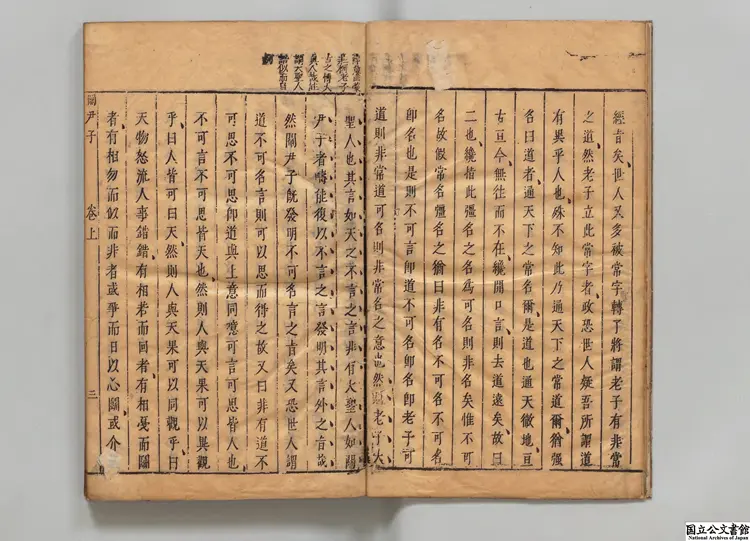 經旨矣世人又多被常字轉了將謂老子有非常
之道然老子立此常字者政恐世人疑吾所謂道
有異乎人也殊不知此乃通天下之常道爾猶强
名曰道者通天下之常名爾是道也通天徹地亘
古亘今無往而不在纔開口言則去道遠矣故曰
二也纔指此彊名之名為可名則非名矣惟不可
名故假常名彊名之猶曰非有名不可名不可名
卽名也是則不可言卽道不可名卽名卽老子可
道則非常道可名則非常名之意也然關老子大
聖人也其言如天之不言之言非有大聖人如關
尹子者疇能復以不言之言發明其言外之言哉
然關尹子旣發明不可名言之旨矣又恐世人謂
道不可名言則可以思而得之故又曰非有道不
可思不可思卽道與上意同噫可言可思皆人也
不可言不可思皆天也然則人與天果可以異觀
乎曰人皆可曰天然則人與天果可以同觀乎曰
天物怒流人事錯錯有相若而回者有相戞而鬬
者有相勿而似而非者或爭而日以心鬬或介
非稱老子
古之博大
眞人哉注
謂大聖人
關尹子
卷上
三
国立公文書館
National Archives of Japan